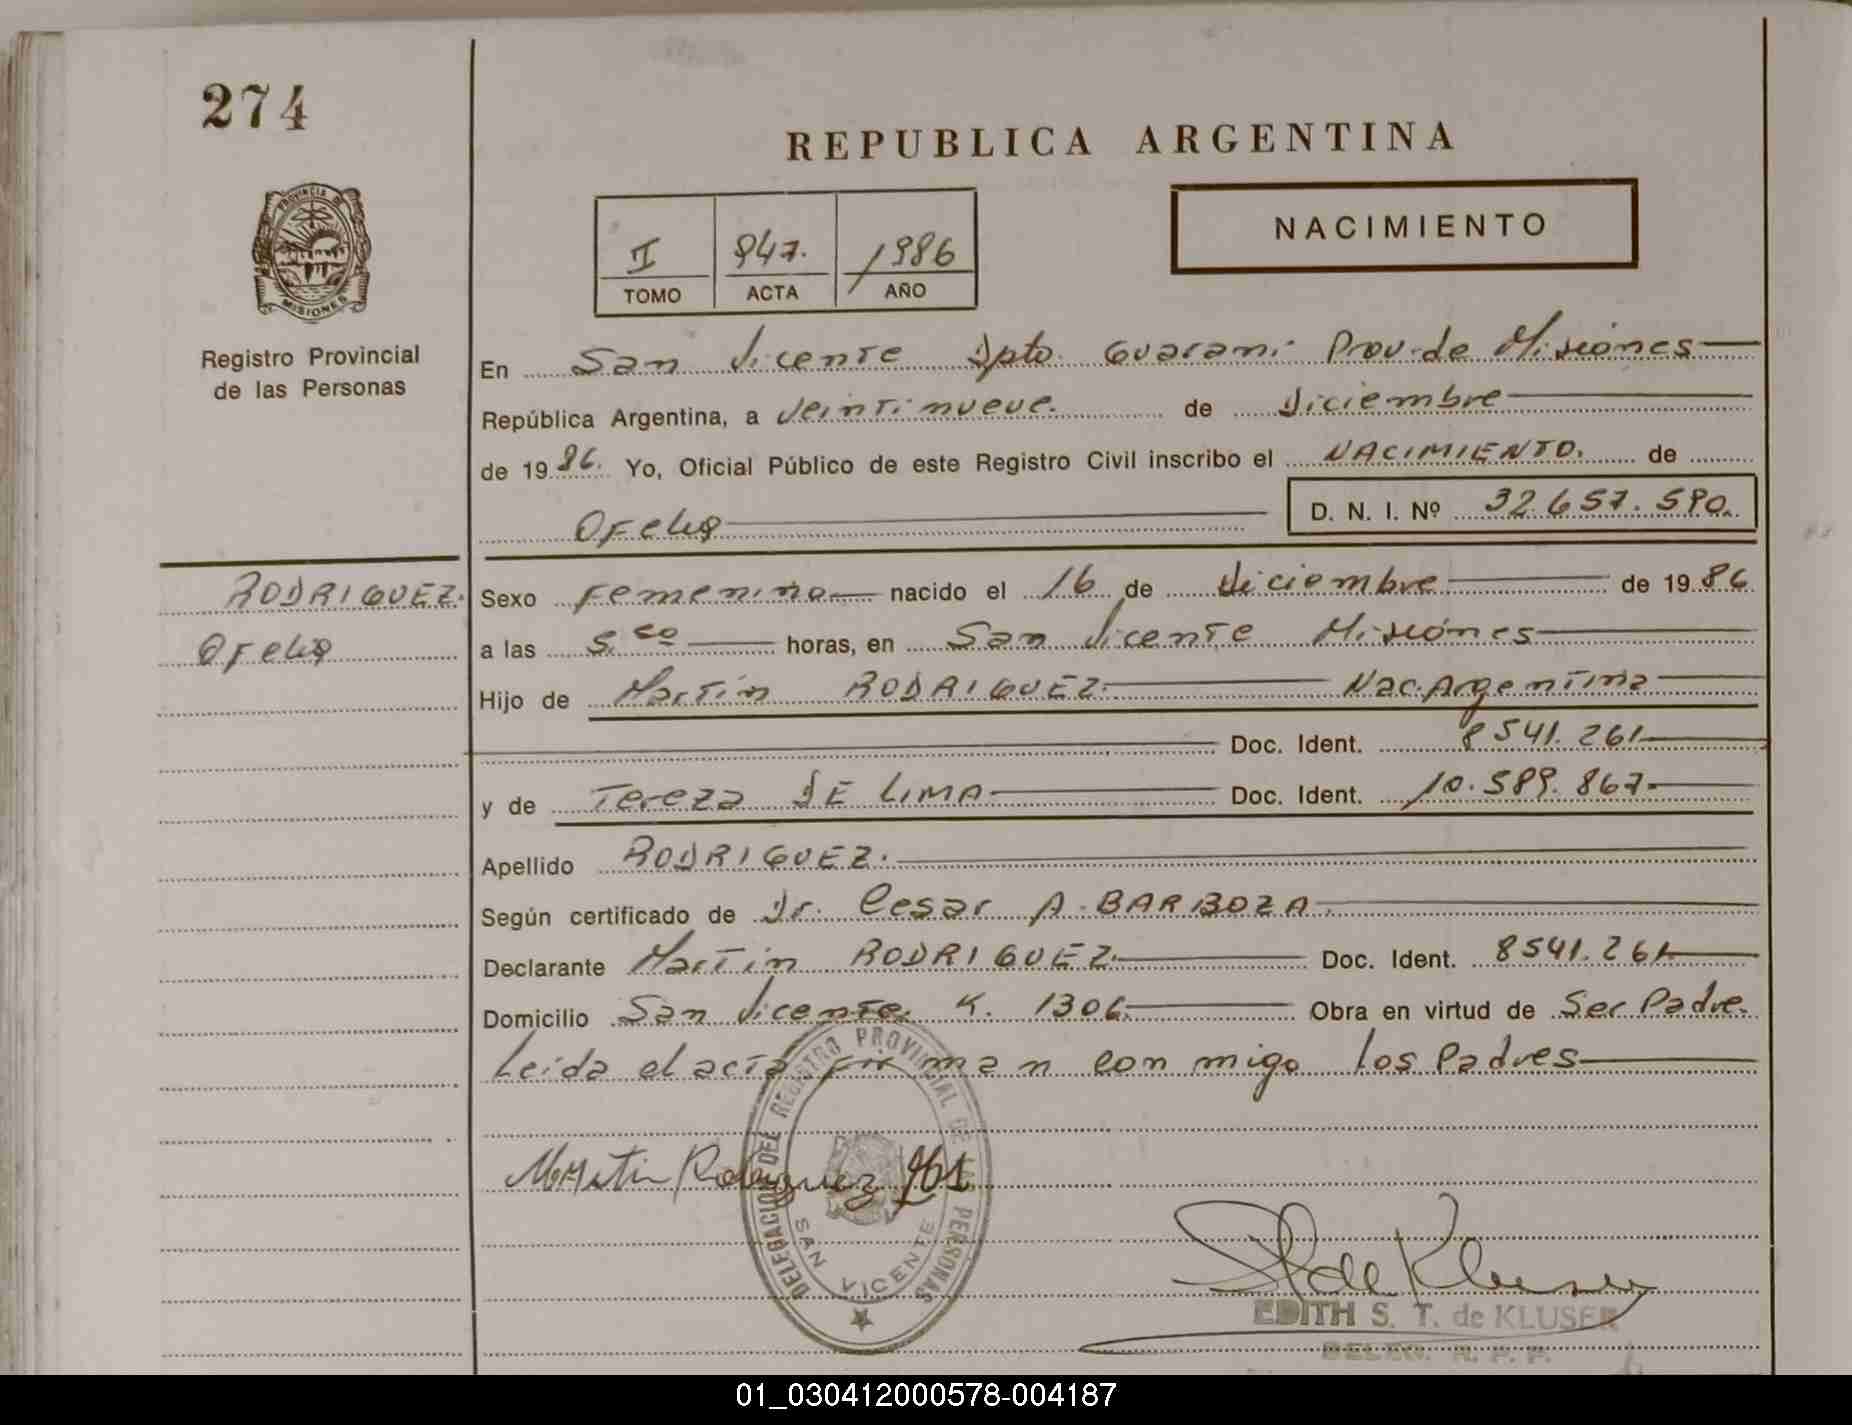 274
REPUBLICA ARGENTINA
NACIMIENTO
I 947. 1986
TOMO ACTA AÑO
PROVINCIA DE MISIONES
Registro Provincial
de las Personas
En San Vicente Dpto. Guarani Prov. de Misiones
República Argentina, a veintinueve. de diciembre
de 1986. Yo, Oficial Público de este Registro Civil inscribo el NACIMIENTO. de
Ofelia D. N. I. Nº 32.657.590.
RODRIGUEZ.
Ofelia
Sexo Femenino nacido el 16 de diciembre de 1986
a las 5.00 horas, en San Vicente Misiones
Hijo de Martín RODRIGUEZ. Nac. Argentina
Doc. Ident. 8541.261
y de Tereza DE LIMA Doc. Ident. 10.589.867.
Apellido RODRIGUEZ.
Según certificado de Dr. Cesar A. BARBOZA.
Declarante Martin RODRIGUEZ. Doc. Ident. 8541.261
Domicilio San Vicente. K. 1306. Obra en virtud de Ser Padre.
Leida el acta firman con migo los Padres
Martin Rodriguez 261
DELEGACION DEL REGISTRO PROVINCIAL DE LAS PERSONAS
SAN VICENTE
EDITH S. T. de KLUSER
DELEG. R. P. P.
01_030412000578-004187